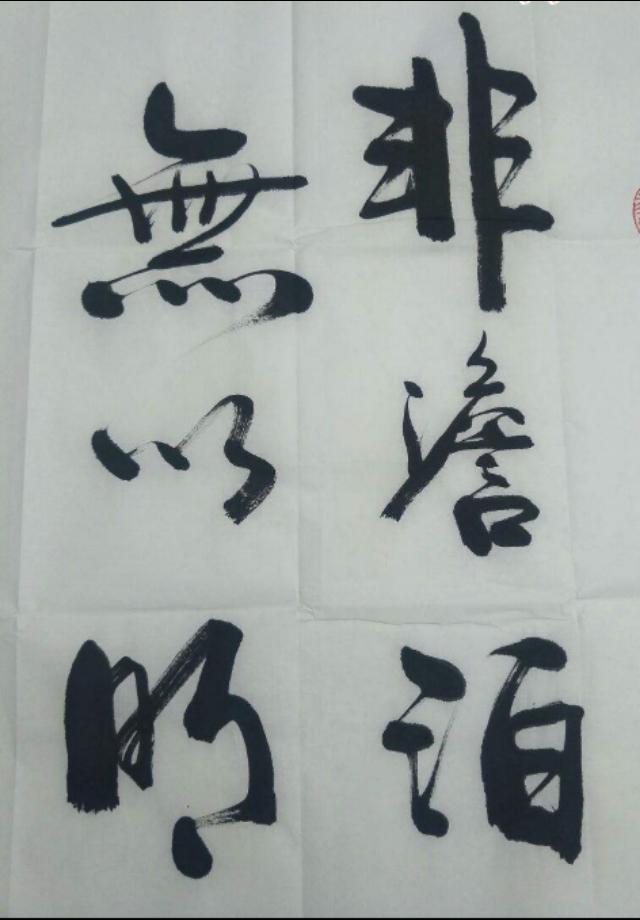 非澹泊
無以明